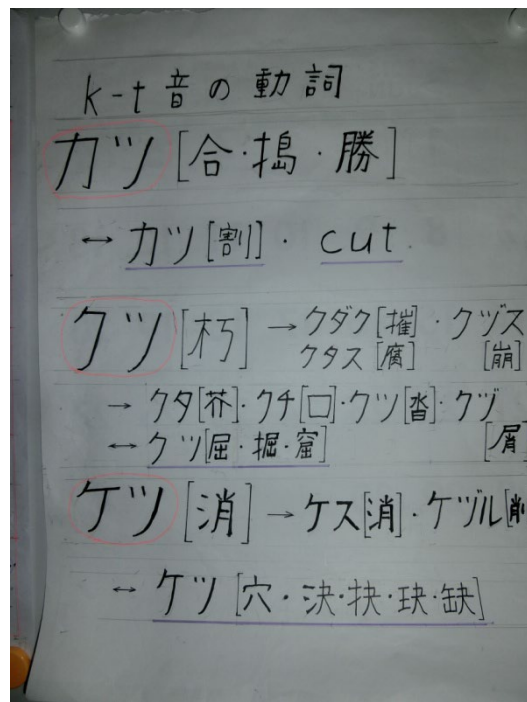 k-t音の動詞
カツ[合・搗・勝]
↔ カツ[割]・cut.
クツ[朽] → クダク[摧]・クヅス
クタス[腐] [崩]
→ クタ[芥]・クチ[口]・クツ[沓]・クヅ
↔ クツ[屈・掘・窟] [屑]
ケツ[消] → ケス[消]・ケヅル[削
↔ ケツ[穴・決・抉・玦・缺]